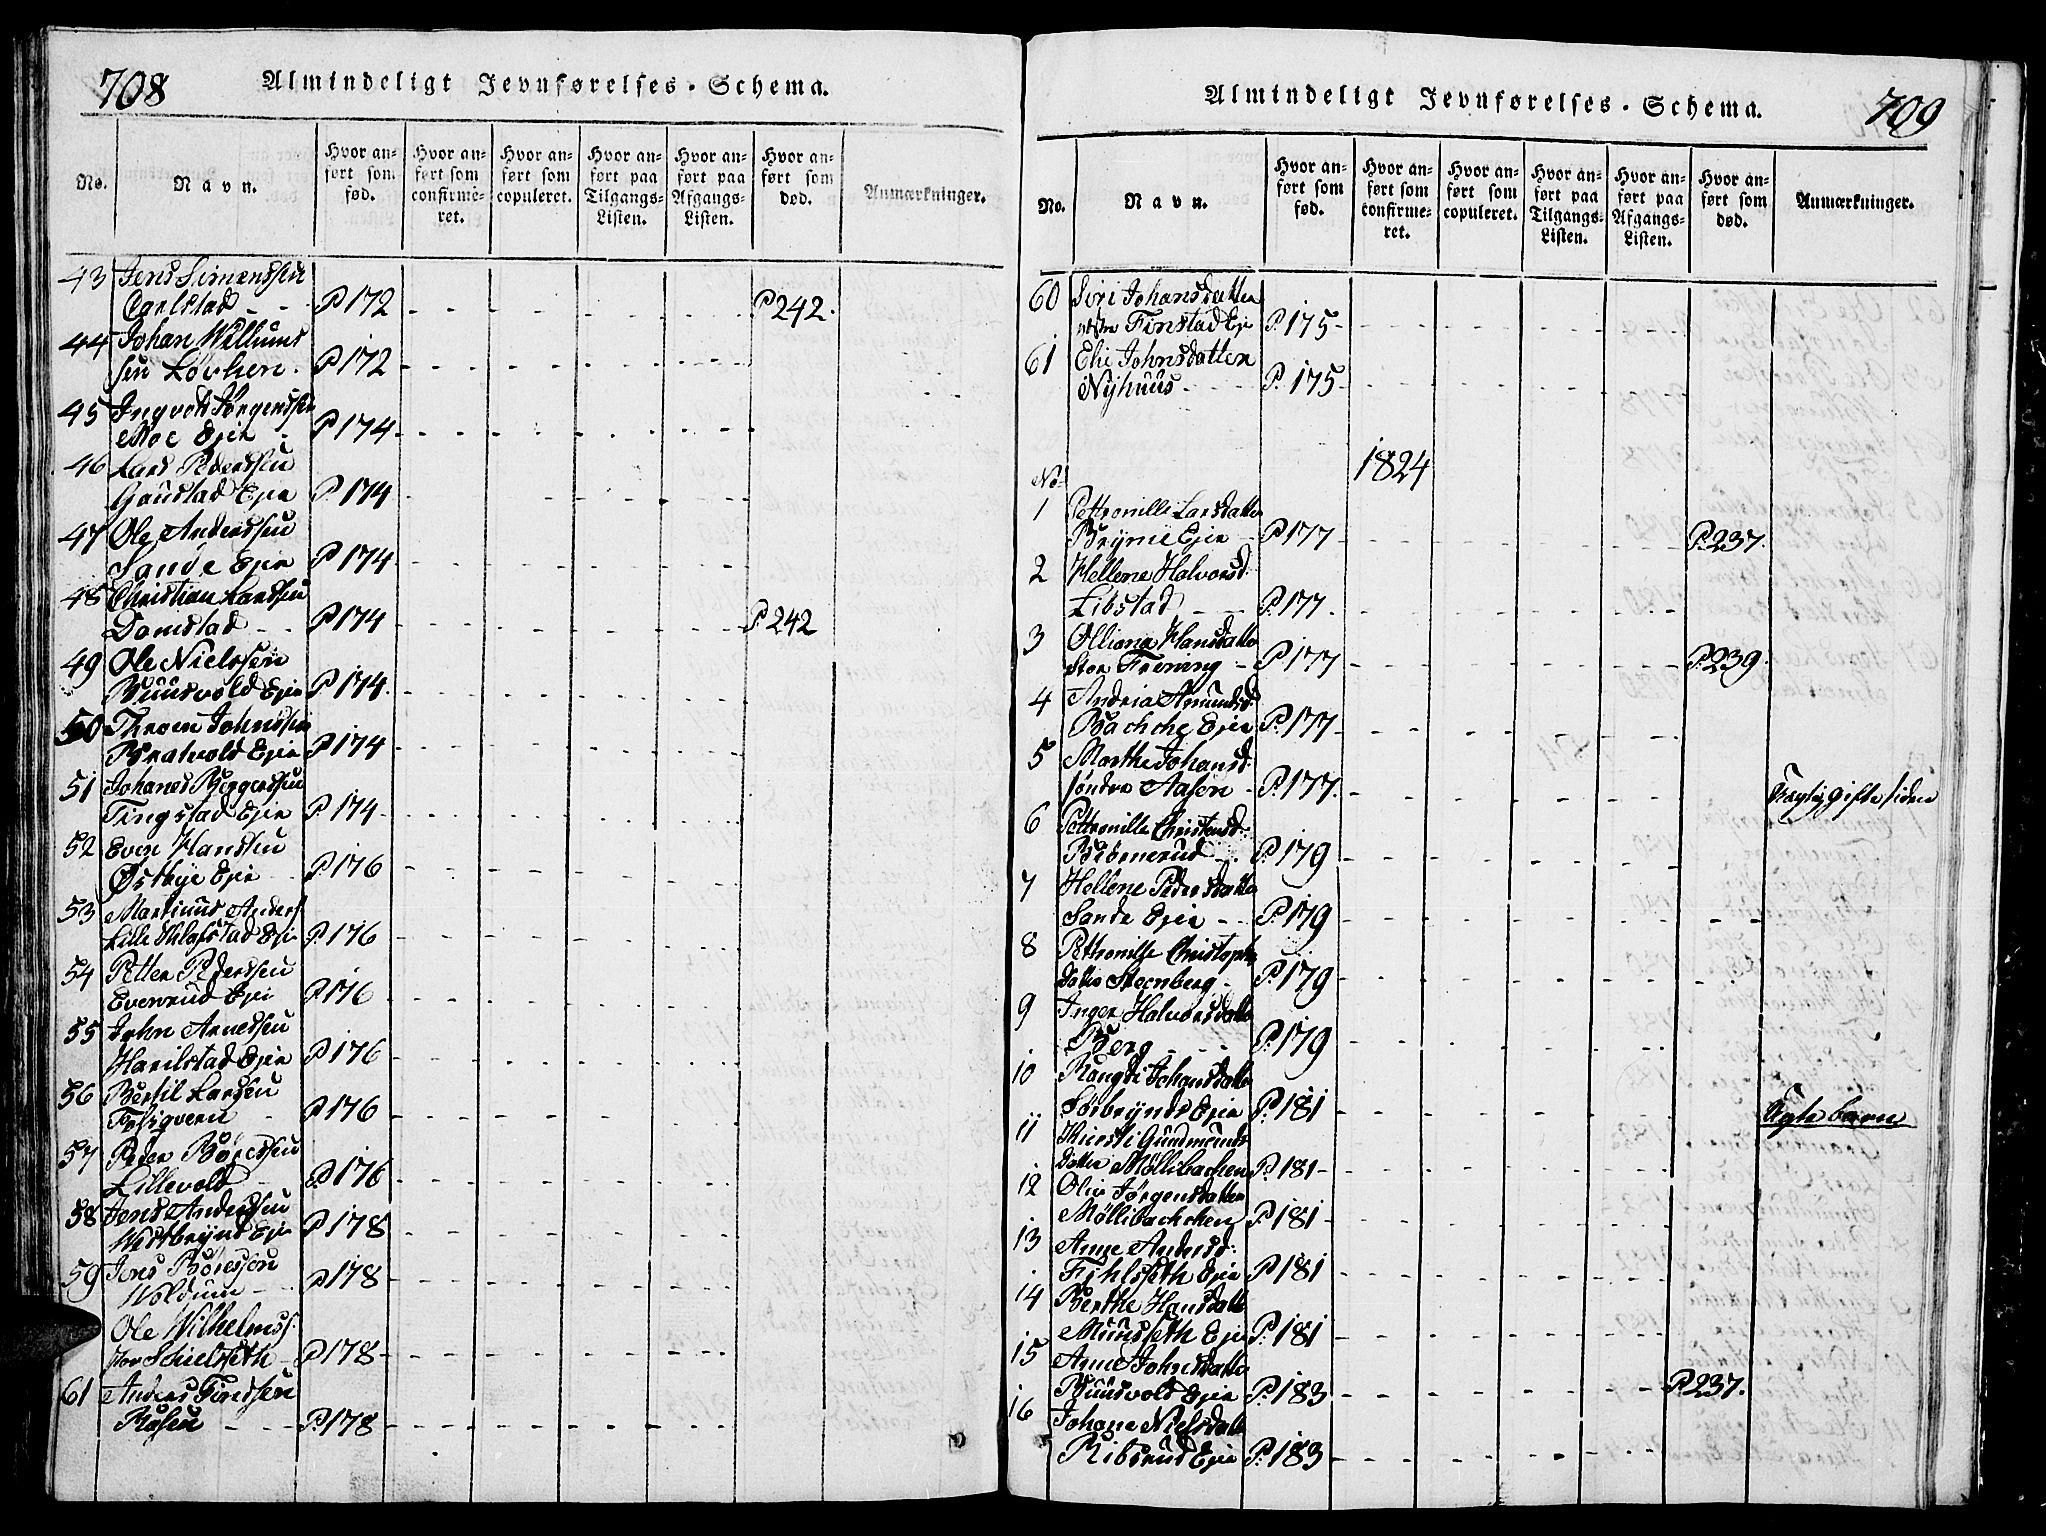 708 Almindeligt Jevnførelses-Schema.
No. Navn. Hvor anført som fød. Hvor anført som confirmeret. Hvor anført som copuleret. Hvor anført paa Tilgangs-Listen. Hvor anført paa Afgangs-Listen. Hvor anført som død. Anmærkninger.
43 Jens Simenssen
Carlstad P172 P242.
44 Johan Willums
sen Løvlien. P172
45 Ingvold Jørgenssen
Moe Ejer P174
46 Lars Pederssen
Gaustad Ejer P174
47 Ole Anderssen
Sande Ejer P174
48 Christian Larssen
Damstad P174 P242
49 Ole Nielssen
Buusvold Ejer P174
50 Thron Johnssen
Bratvold Ejer P174
51 Johanes Byggerssen
Tingstad Ejer P174
52 Even Hanssen
Østbye Ejer P176
53 Martinus Anders
Lille Klafstad Eje P176
54 Petter Pederssen
Evenrud Eje P176
55 John Arnessen
Harilstad Ejer P176
56 Bertil Larssen
Folsqvern P176
57 Peder Børessen
Lillevold P176
58 Jens Anderssen
Westbrynd Eje P178
59 Jens Børessen
Woldum P178
Ole Wilhelmss:
Stor Schielseth P178
61 Anders Findssen
Rosen P178
Almindeligt Jevnførelses-Schema. 709
No. Navn. Hvor anført som fød. Hvor anført som confirmeret. Hvor anført som copuleret. Hvor anført paa Tilgangs-Listen. Hvor anført paa Afgangs-Listen. Hvor anført som død. Anmærkninger.
60 Siri Johansdatter
Finstad Eje P175
61 Elie Johnsdatter
Nyhuus P175
No. 1824
1 Pettronille Larsdatter
Brynie Ejer P177 P237.
2 Hellene Halvorsd:
Libstad P177.
3 Olliana Hansdatter
Stor Frening P177 P239.
4 Andria Amundsd:
Bachche Ejer P177
5 Marthe Johansd:
søndre Aasen P177. gifte siden
6 Pettronille Christensd:
Biørnerud P179
7 Hellene Pedersdatter
Sande Ejer P179
8 Pettronille Christoph
datter Steenberg P179
9 Inger Halvorsdatter
Berg P179
10 Rangdi Johansdatter
Sørbrynds Ejer P181 Ægte barn
11 Kiersti Gundmunds
datter Møllibachen P181
12 Olia Jørgensdatter
Møllibachchen P181
13 Anne Andersd:
Fihlsseth Ejer P181
14 Berthe Hansdatter
Muusseth Ejer P181
15 Anne Johnsdatter
Buusvold Ejer P183 P237.
16 Johane Nielsdatter
Ribsrud Ejer P183